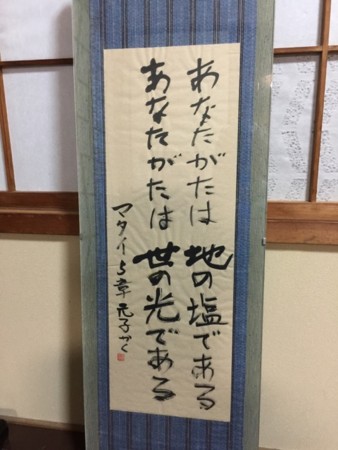 あなたがたは地の塩である
あなたがたは世の光である
マタイ5章 元子かく